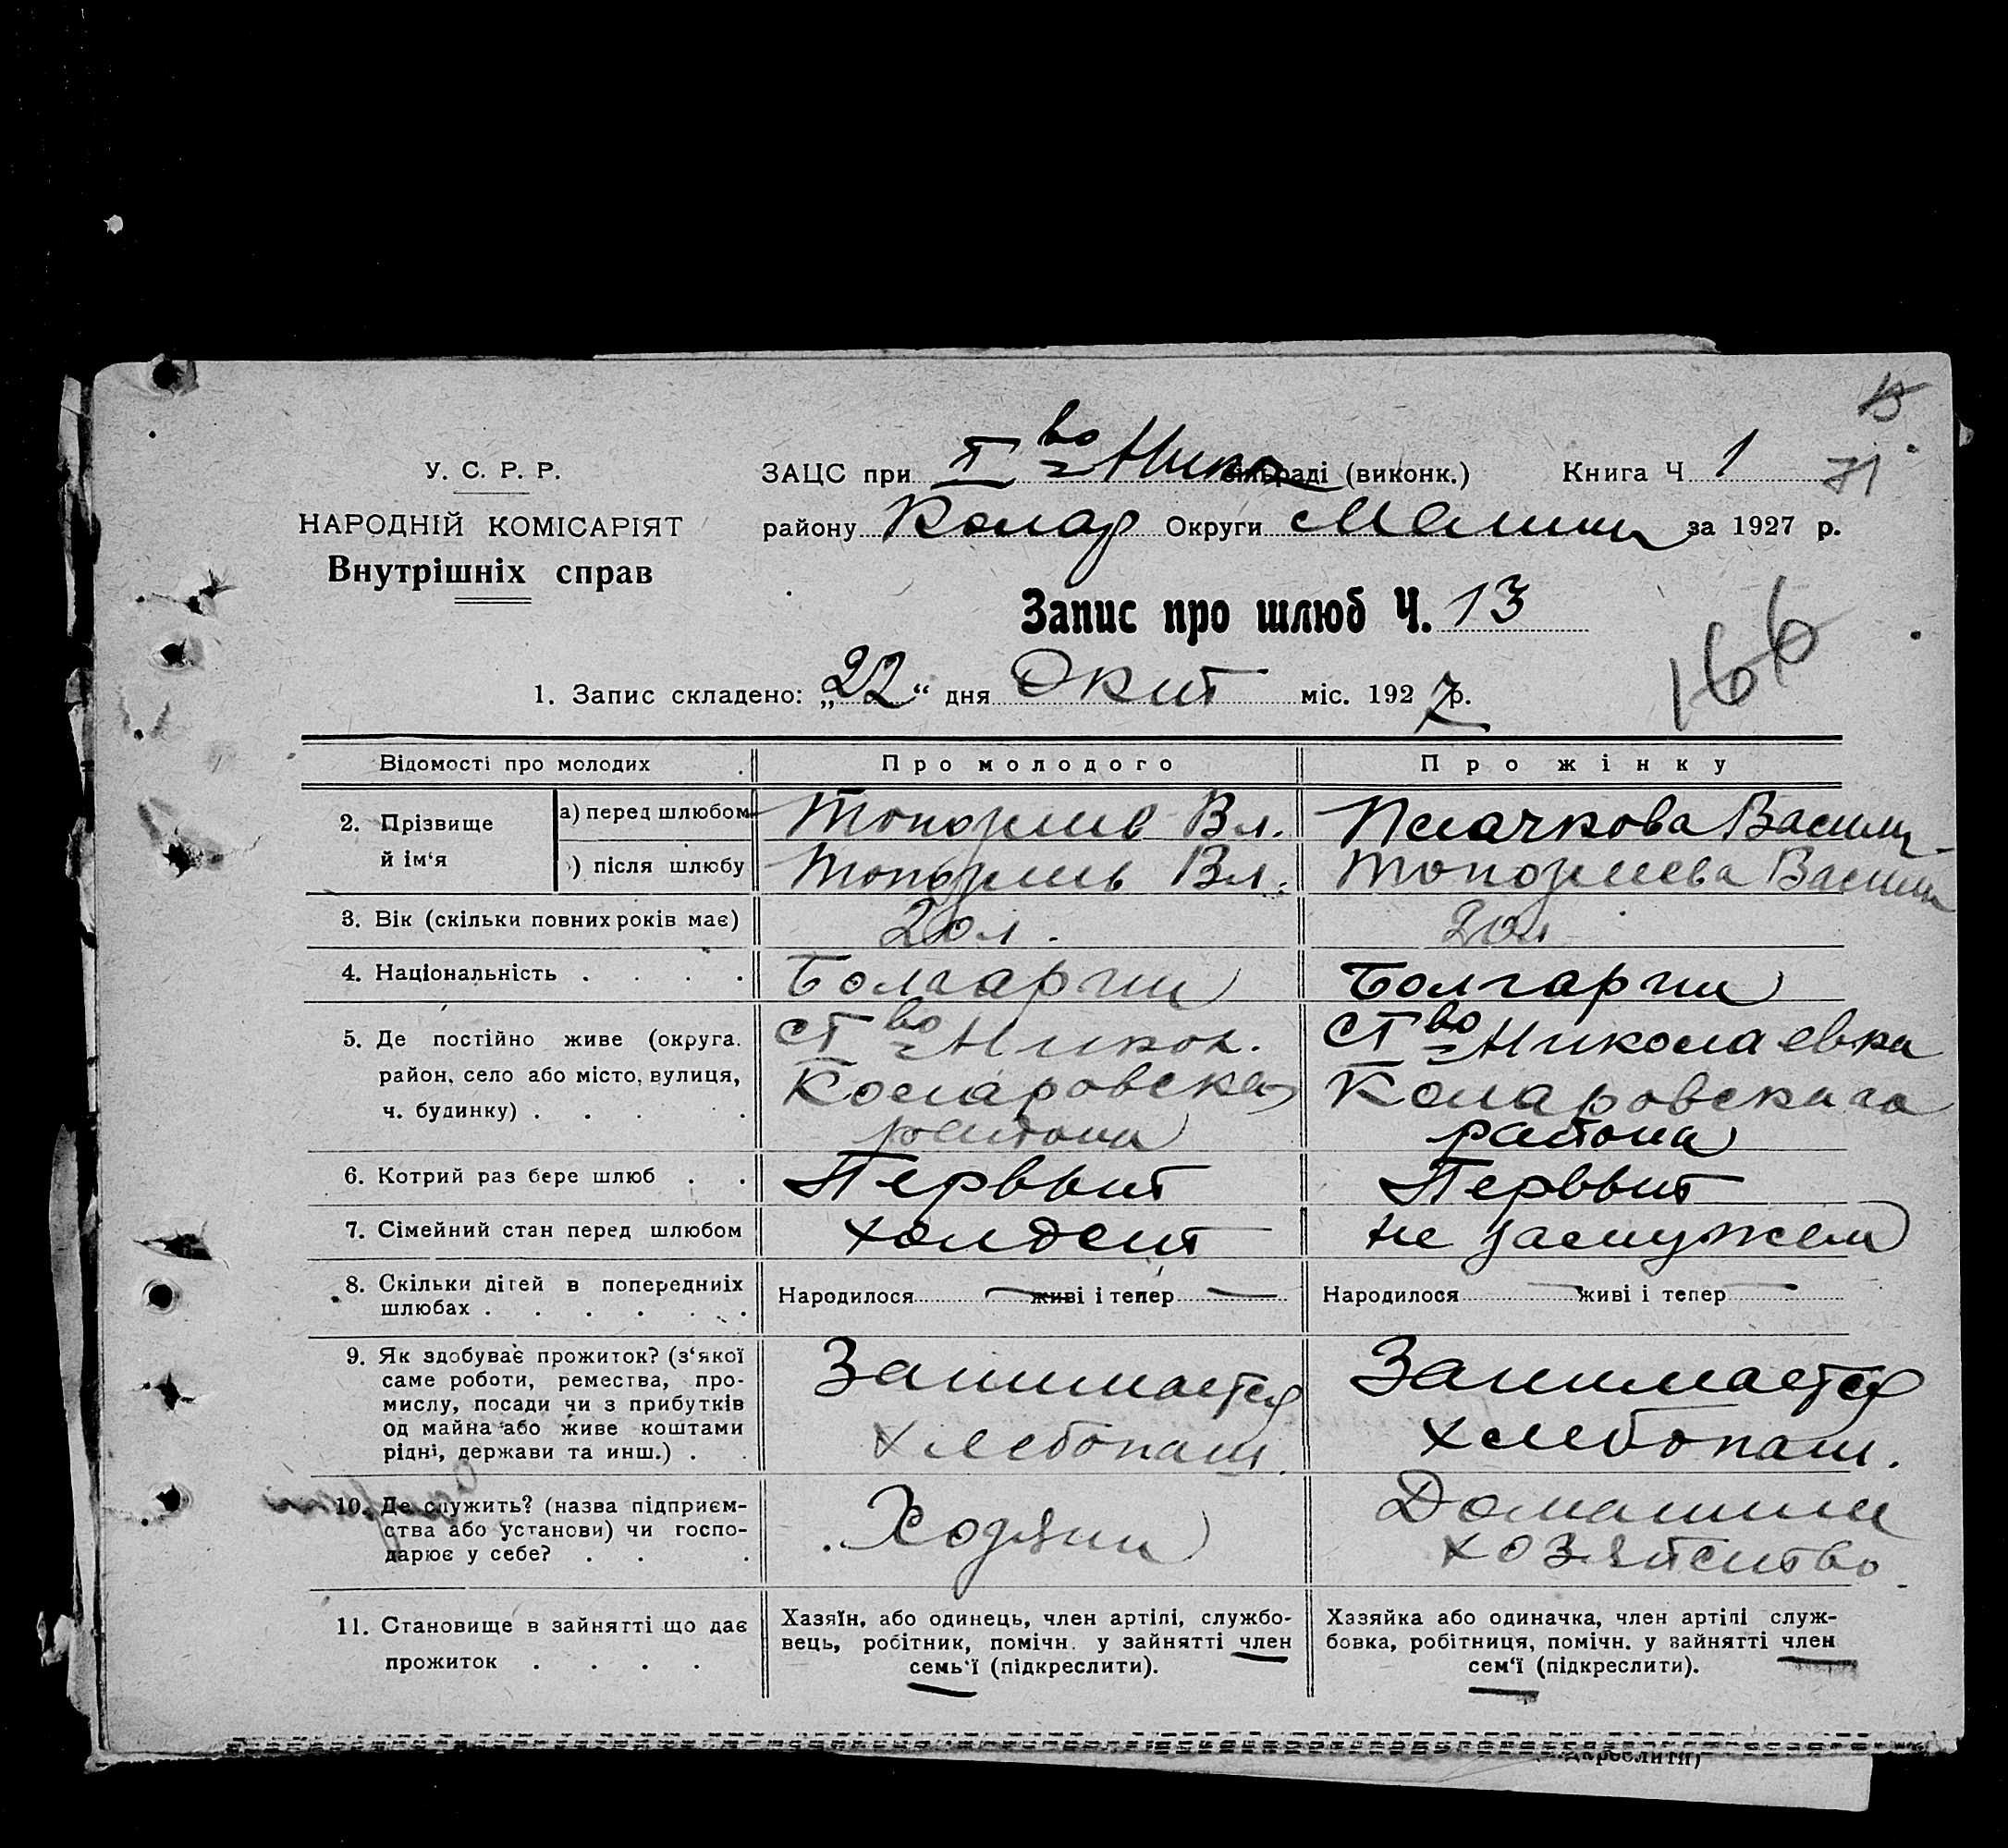 13
У. С. Р. Р.
НАРОДНІЙ КОМІСАРІЯТ
Внутрішніх справ
ЗАЦС при I во Ник сільраді (виконк.) Книга Ч 1 71
району Колар Округи за 1927 р.
Запис про шлюб Ч. 13
166
1. Запис складено: „22“ дня міс. 1927 р.
Відомості про молодих Про молодого Про жінку
2. Прізвище й ім‘я
а) перед шлюбом Вл. Плачкова Васили
) після шлюбу Вл.
3. Вік (скільки повних років має) 20 л. 20 л
4. Національність . . . . Болгарин Болгарин
5. Де постійно живе (округа. с I во Никол. с I во Николаевка
район, село або місто, вулиця, Коларовска Коларовскага
ч. будинку) . . . . района района
6. Котрий раз бере шлюб . . Первый Первый
7. Сімейний стан перед шлюбом холдей не
8. Скільки дітей в попередниіх Народилося — живі і тепер — Народилося — живі і тепер —
шлюбах . . . . . .
9. Як здобуває прожиток? (з‘якої
саме роботи, ремества, про-
мислу, посади чи з прибутків
од майна або живе коштами
рідні, держави та инш.) . .
Занимается
хлебопаш.
Занимается
хлебопаш.
10. Де служить? (назва підприєм-
ства або установи) чи госпо-
дарює у себе? . . .
Хозяин
Домашние
хозяйство.
11. Становище в зайнятті що дає
прожиток . . . .
Хазяїн, або одинець, член артілі, службо-
вець, робітник, помічн. у зайнятті член
семь‘ї (підкреслити).
Хазяйка або одиначка, член артілі служ-
бовка, робітниця, помічн. у зайнятті член
сем‘ї (підкреслити).